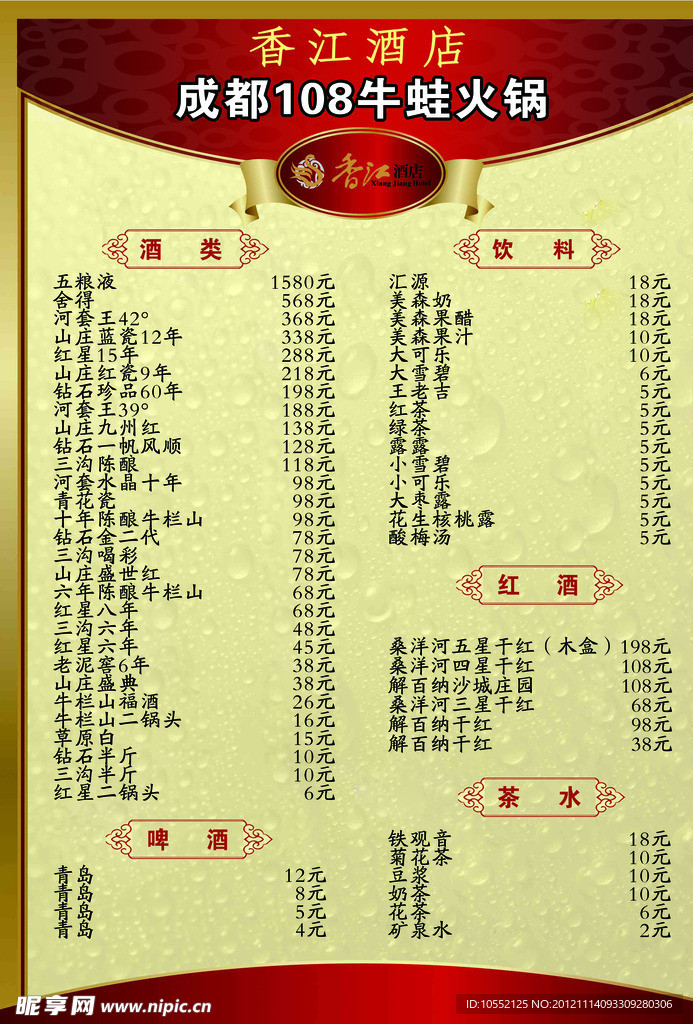 香江酒店
成都108牛蛙火锅
香江酒店
Xiang Jiang Hotel
酒 类
五粮液 1580元
舍得 568元
河套王42° 368元
山庄蓝瓷12年 338元
红星15年 288元
山庄红瓷9年 218元
钻石珍品60年 198元
河套王39° 188元
山庄九州红 138元
钻石一帆风顺 128元
三沟陈酿 118元
河套水晶十年 98元
青花瓷 98元
十年陈酿牛栏山 98元
钻石金二代 78元
三沟喝彩 78元
山庄盛世红 78元
六年陈酿牛栏山 68元
红星八年 68元
三沟六年 48元
红星六年 45元
老泥窖6年 38元
山庄盛典 38元
牛栏山福酒 26元
牛栏山二锅头 16元
草原白 15元
钻石半斤 10元
三沟半斤 10元
红星二锅头 6元
啤 酒
青岛 12元
青岛 8元
青岛 5元
青岛 4元
饮 料
汇源 18元
美森奶 18元
美森果醋 18元
美森果汁 10元
大可乐 10元
大雪碧 6元
王老吉 5元
红茶 5元
绿茶 5元
露露 5元
小雪碧 5元
小可乐 5元
大枣露 5元
花生核桃露 5元
酸梅汤 5元
红 酒
桑洋河五星干红（木盒）198元
桑洋河四星干红 108元
解百纳沙城庄园 108元
桑洋河三星干红 68元
解百纳干红 98元
解百纳干红 38元
茶 水
铁观音 18元
菊花茶 10元
豆浆 10元
奶茶 10元
花茶 6元
矿泉水 2元
昵享网 www.nipic.cn
ID:10552125 NO:20121114093309280306